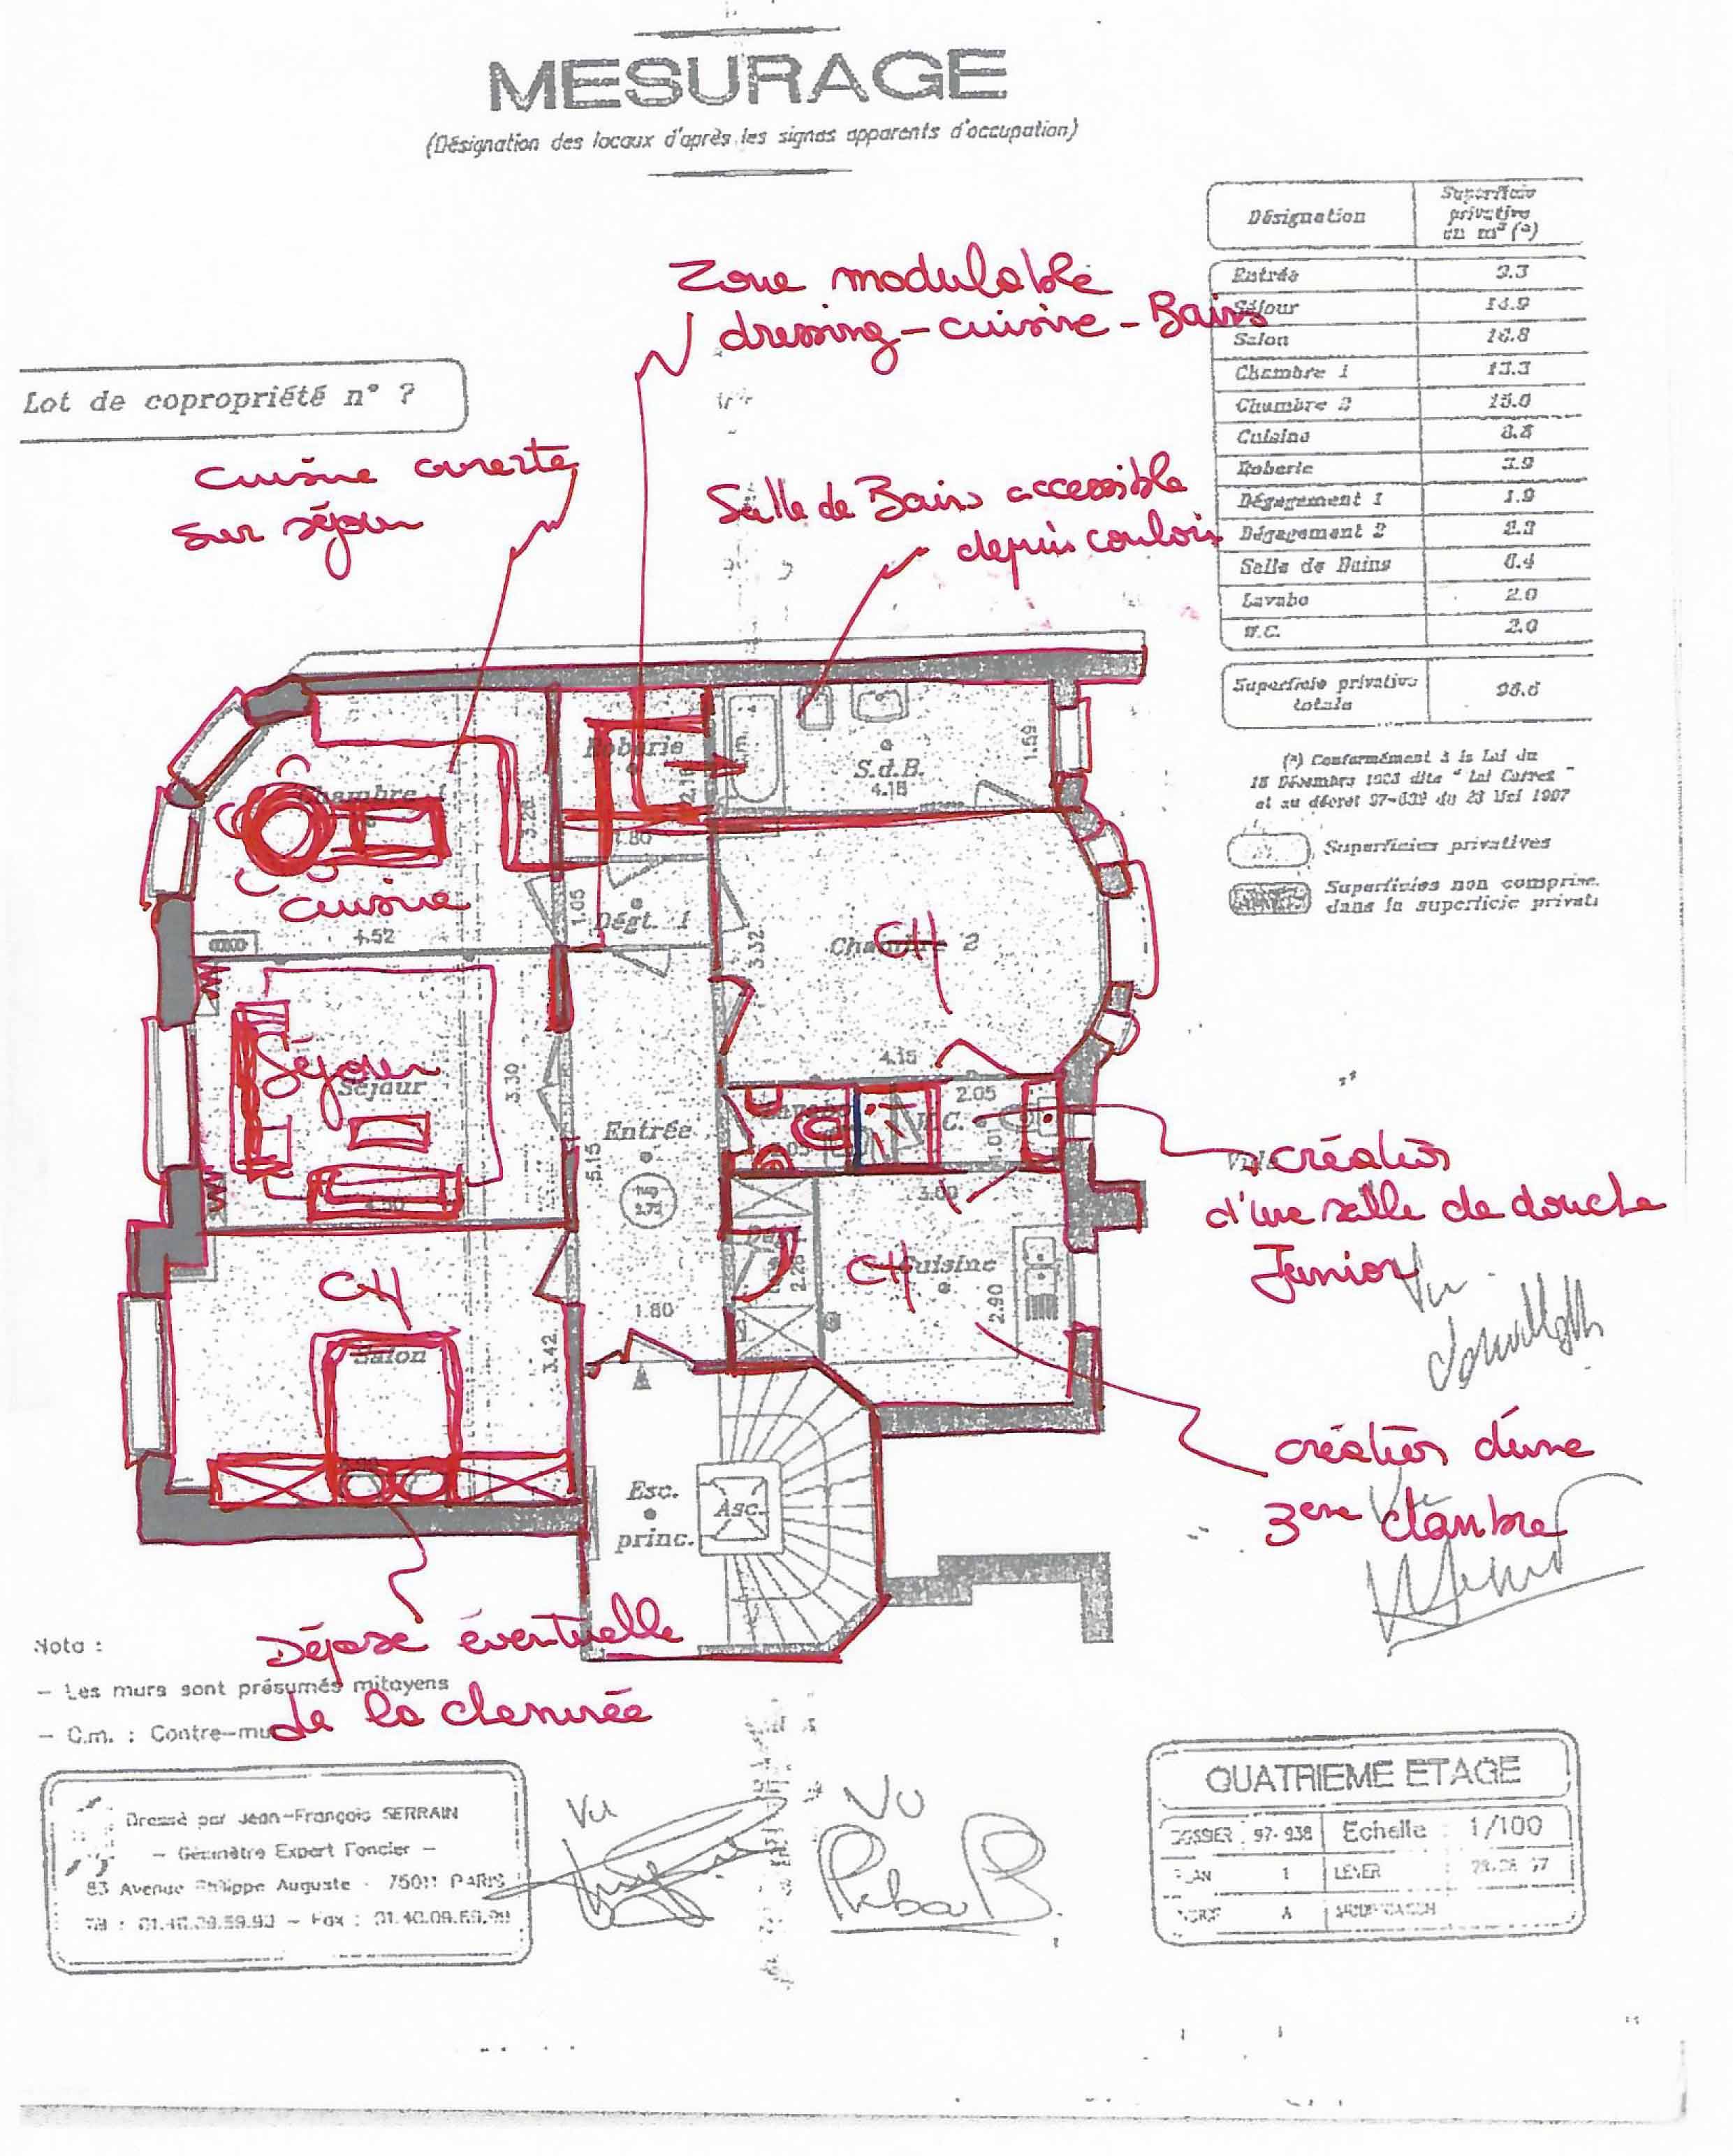 MESURAGE
(Désignation des locaux d'après les signes apparents d'occupation)
Désignation
Superficie
privative
en m² (*)
Entrée
Séjour 14.9
Salon
Chambre 1 13.3
Chambre 2 15.0
Cuisine
Roberie 3.9
Dégagement 1 1.9
Dégagement 2
Salle de Bains
Lavabo 2.0
W.C. 2.0
Superficie privative
totale
(*) Conformément à la Loi du
18 Décembre dite " Loi Carrez "
et au décret du 23 Mai 1997
Superficies privatives
Superficies non comprise
dans la superficie privati
Lot de copropriété n° ?
Zone modulable
dressing - cuisine - Bains
cuisine ouverte
sur séjour
Salle de Bains accessible
depuis couloir
Roberie
2.16
1.80
S.d.B.
4.15
1.59
Chambre 1
3.26
cuisine
4.52
1.05
Dégt. 1
3.32
Chambre 2
CH
4.15
Séjour
Séjour
3.30
Entrée
5.15
2.05
W.C.
1.01
création
d'une salle de douche
Junior
Vu
3.00
CH
Cuisine
2.90
CH
Salon
3.42
1.80
Esc.
princ.
Asc.
création d'une
3eme chambre
Dépose éventuelle
de la cheminée
Nota :
- Les murs sont présumés mitoyens
- C.m. : Contre-mu
Dressé par Jean-François SERRAIN
- Géomètre Expert Foncier -
83 Avenue Philippe Auguste - 75011 PARIS
Vu
Vu
QUATRIEME ETAGE
DOSSIER 97-938 Echelle 1/100
PLAN 1 LEVER
INDICE A